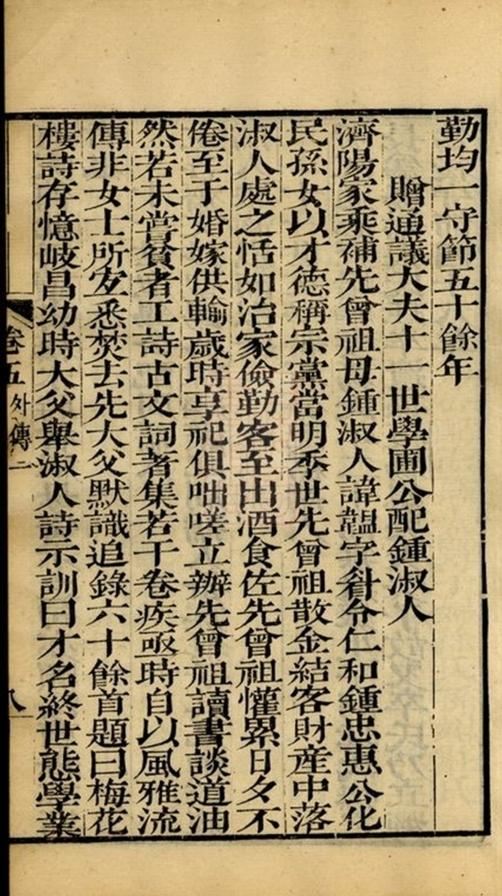 勤均一守節五十餘年
贈通議大夫十一世學圃公配鍾淑人
濟陽家乘補先曾祖母鍾淑人諱韞字眷令仁和鍾忠惠公化
民孫女以才德稱宗黨當明季世先曾祖散金結客財産中落
淑人處之恬如治家儉勤客至出酒食佐先曾祖懽累日夕不
倦至于婚嫁供輸歲時享祀俱咄嗟立辦先曾祖讀書談道油
然若未嘗貧者工詩古文詞著集若干卷疾亟時自以風雅流
傳非女士所宐悉焚去先大父默識追錄六十餘首題曰梅花
樓詩存憶岐昌幼時大父舉淑人詩示訓曰才名終世態學業
卷五 外傳一 八